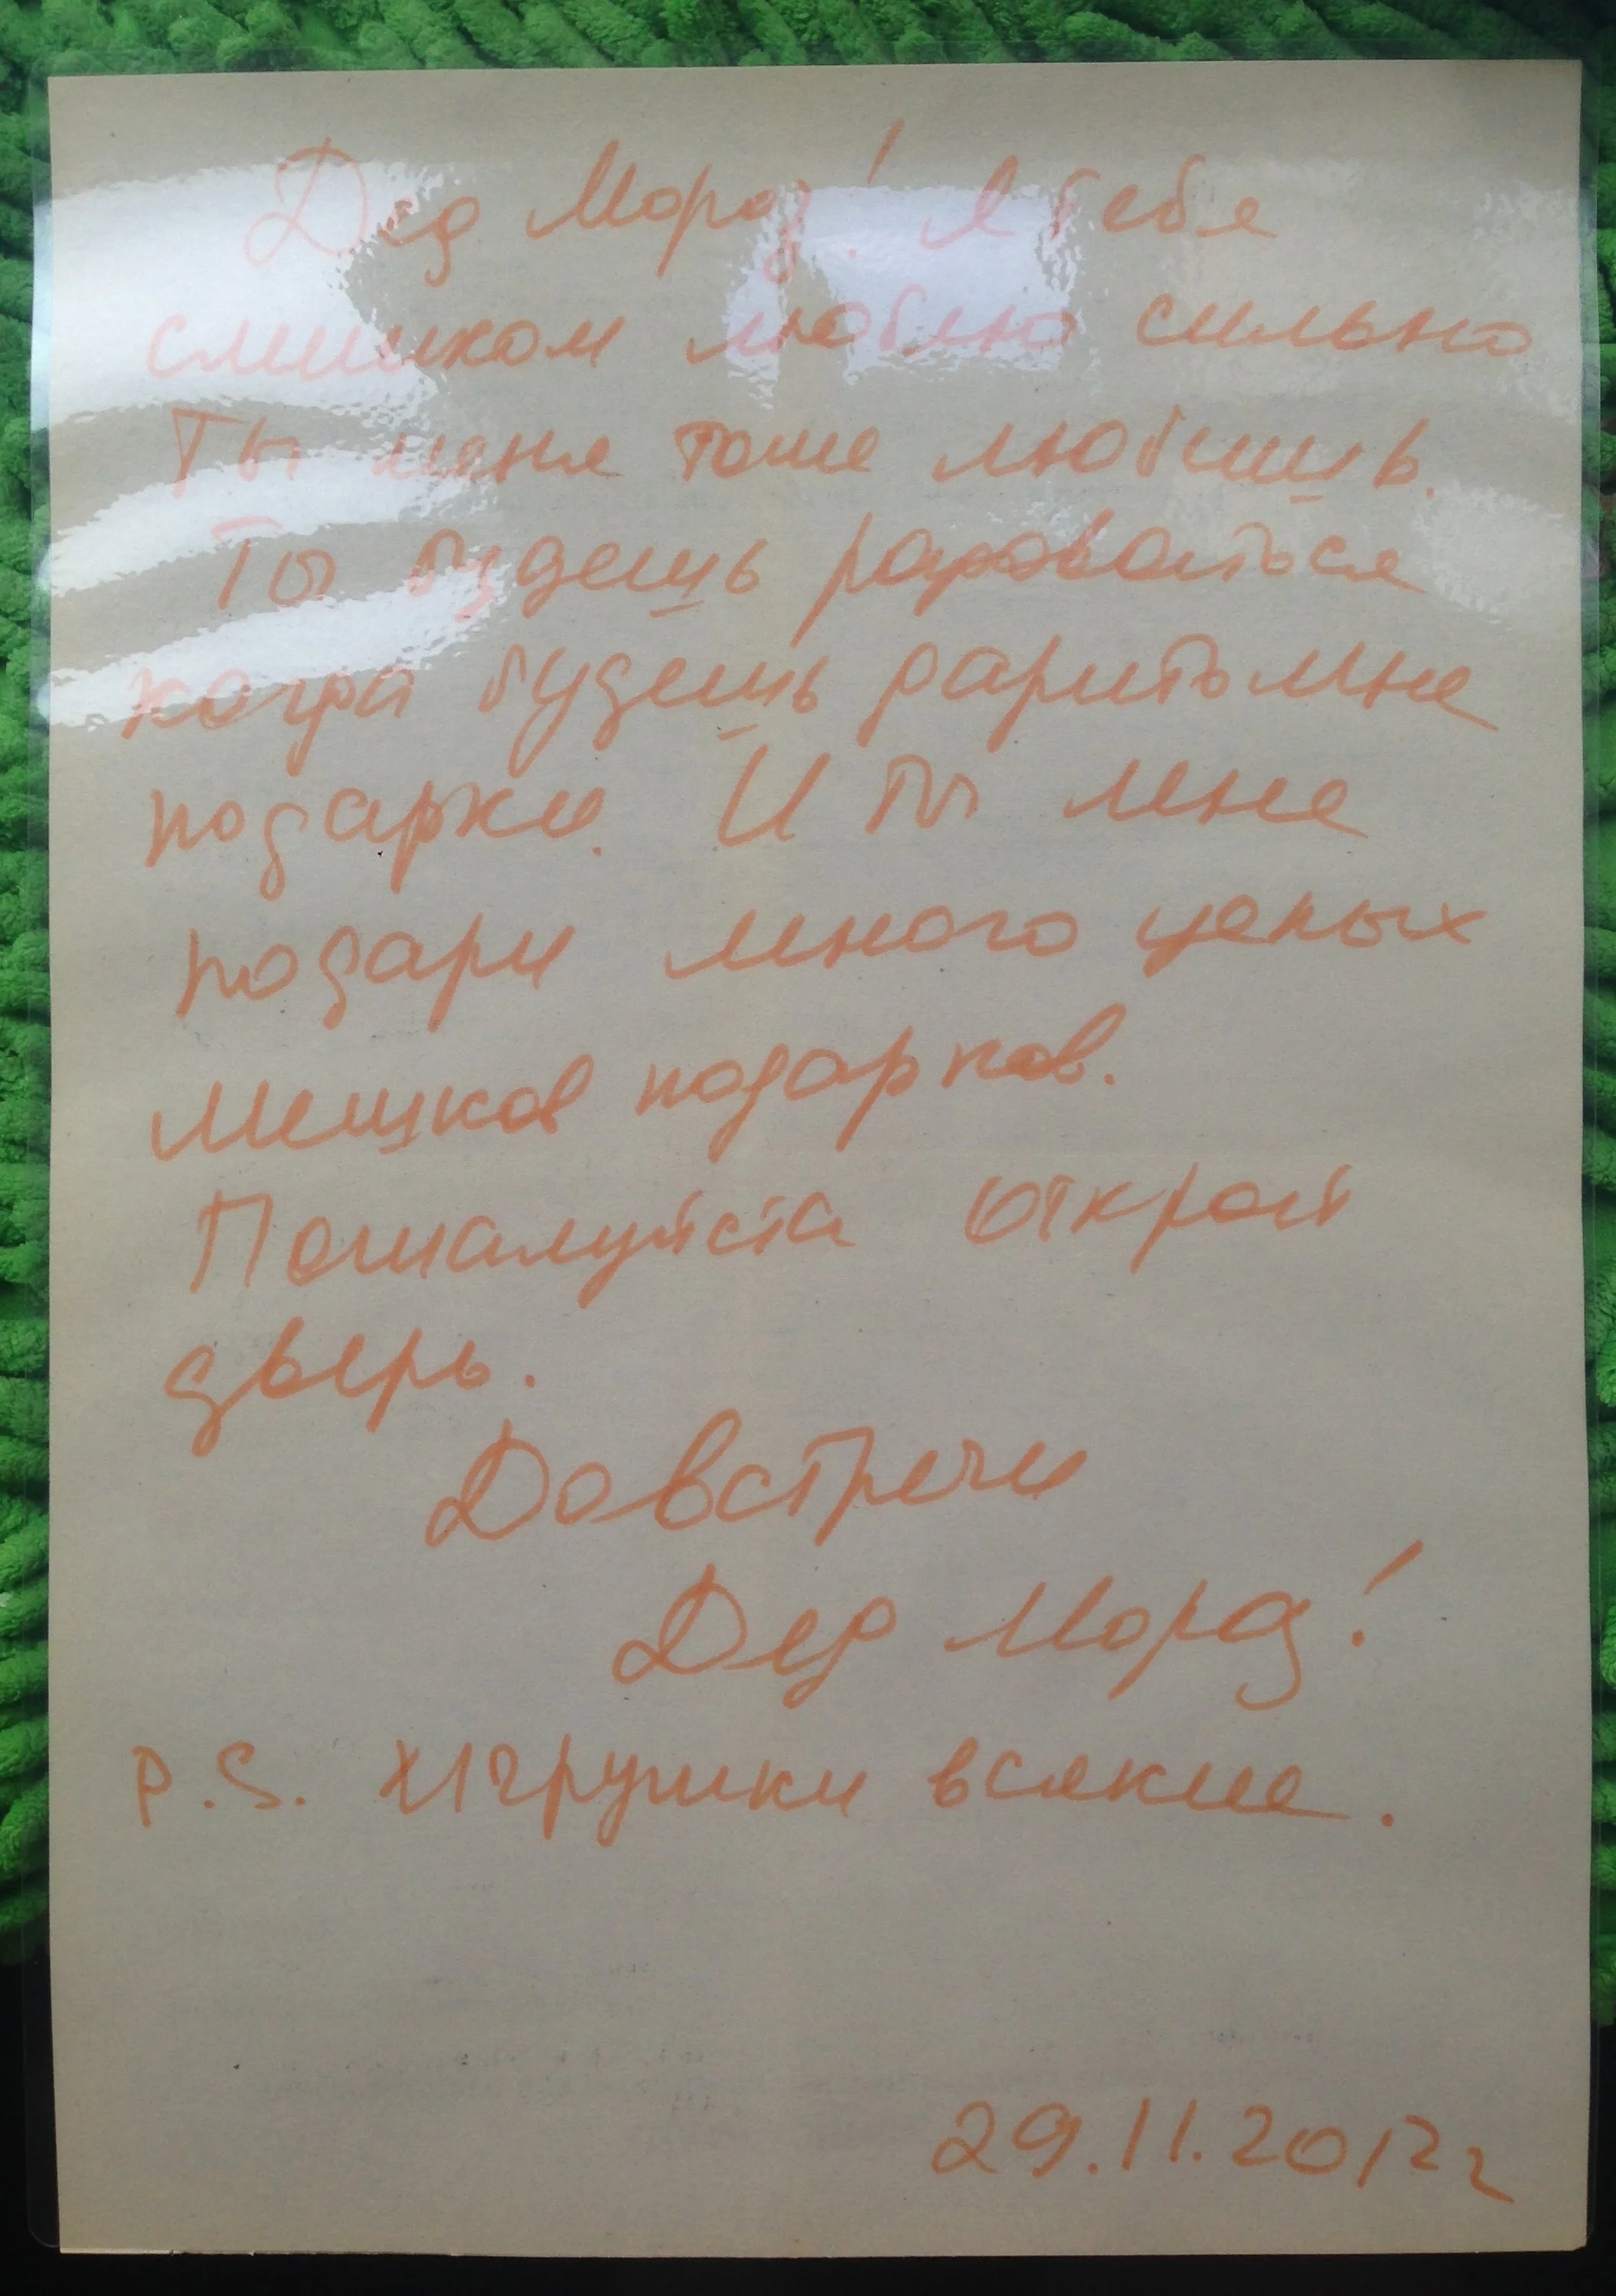 Дед Мороз! Я тебя
слишком люблю сильно
Ты меня тоже любишь.
Ты будешь радоваться
когда будешь дарить мне
подарки. И ты мне
подари много целых
мешков подарков.
Пожалуйста открой
дверь.
До встречи
Дед Мороз!
P.S. Игрушки всякие.
29.11.2012г